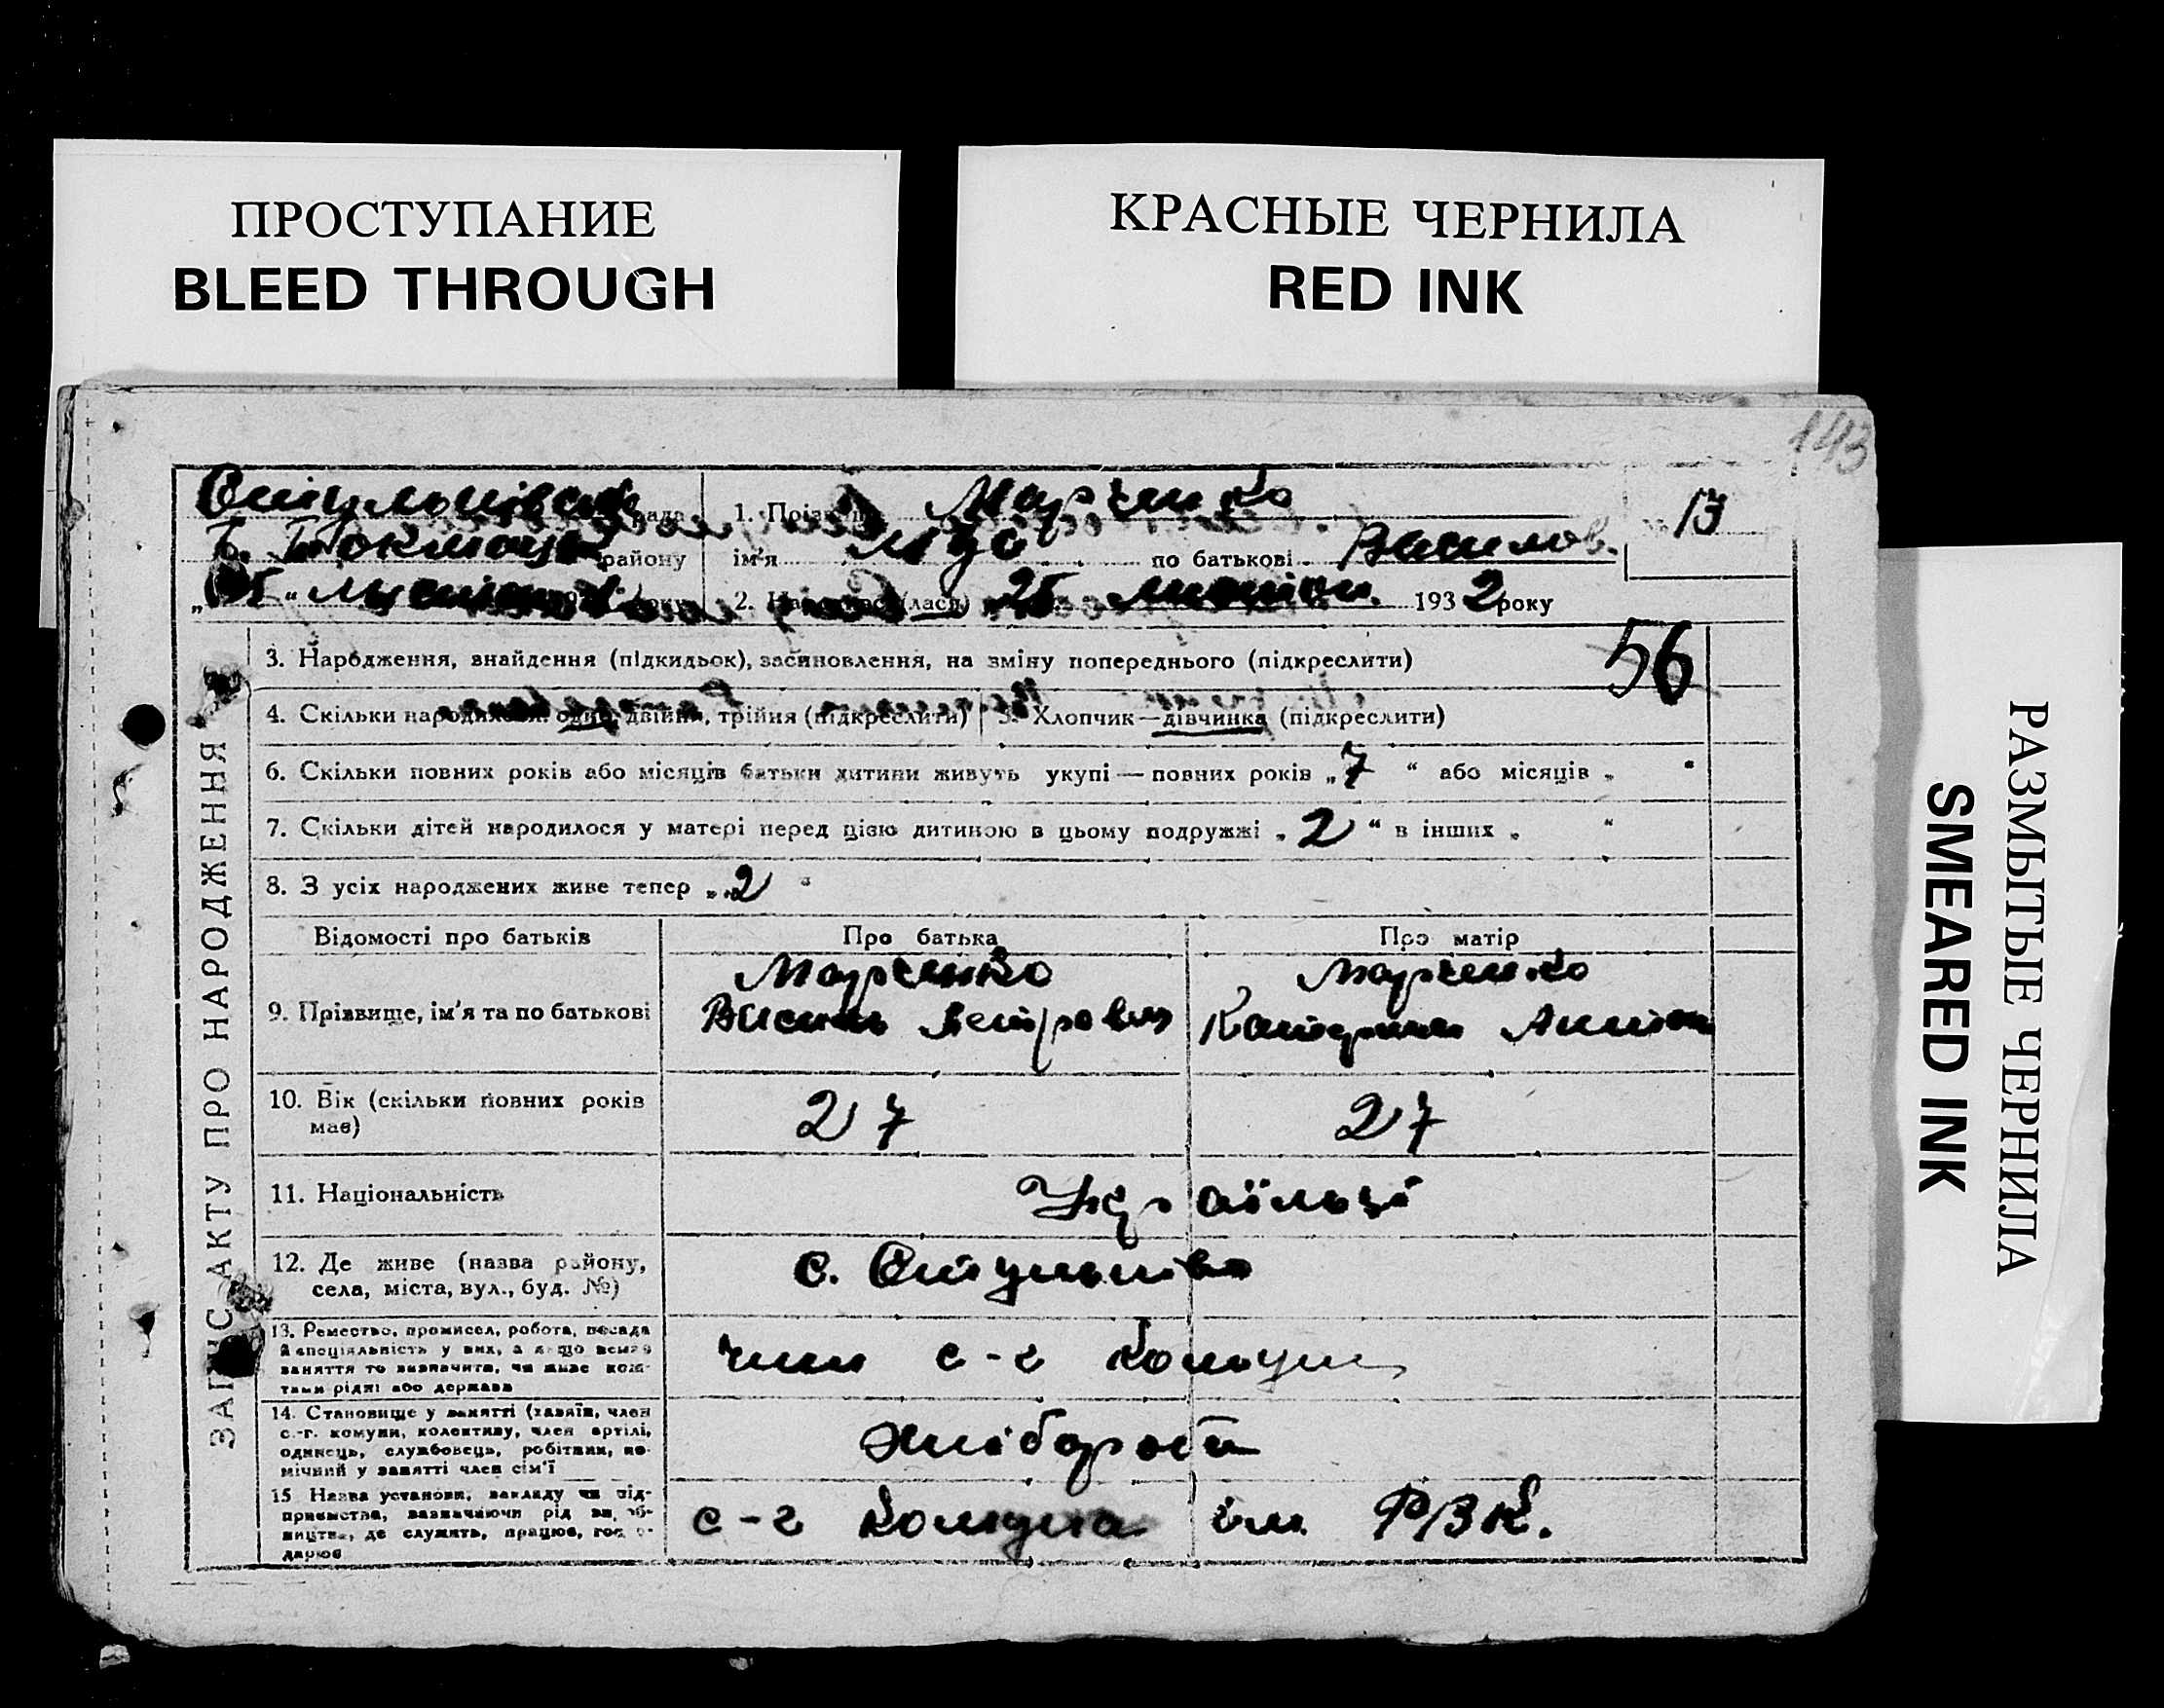 ПРОСТУПАНИЕ
BLEED THROUGH
КРАСНЫЕ ЧЕРНИЛА
RED INK
РАЗМЫТЫЕ ЧЕРНИЛА
SMEARED INK
143
рада
Б. Токмацьк району
13
1. Прізвище Марченко
ім'я по батькові Василов.
2. Народивсь (лася) 25 1932 року
56
ЗАПИС АКТУ ПРО НАРОДЖЕННЯ
3. Народження, знайдення (підкидьок), засиновлення, на зміну попереднього (підкреслити)
4. Скільки народилося: одно, двійня, трійня (підкреслити)
5. Хлопчик—дівчинка (підкреслити)
6. Скільки повних років або місяців батьки дитини живуть укупі — повних років „7“ або місяців „ “
7. Скільки дітей народилося у матері перед цією дитиною в цьому подружжі „2“ в інших „ “
8. З усіх народжених живе тепер „2“
Відомості про батьків Про батька Про матір
9. Прізвище, ім'я та по батькові
Марченко
Василь Петрович
Марченко
Катерина Антон
10. Вік (скільки повних років
має)
27 27
11. Національність Українці
12. Де живе (назва району,
села, міста, вул., буд. №)
с.
13. Ремество, промисел, робота, посада
й спеціяльність у них, а якщо немає
заняття то визначити, чи живе кош-
тами рідні або держави
член с-г комуни
14. Становище у занятті (хазяїн, член
с.-г. комуни, колективу, член артілі,
одинець, службовець, робітник, по-
мічний у занятті член сім'ї
хлібороби
15 Назва установи, закладу чи під-
приємства, зазначаючи рід ви об-
ництва, де служить, працює, госпо-
дарює
с-г комуна ім РВК.